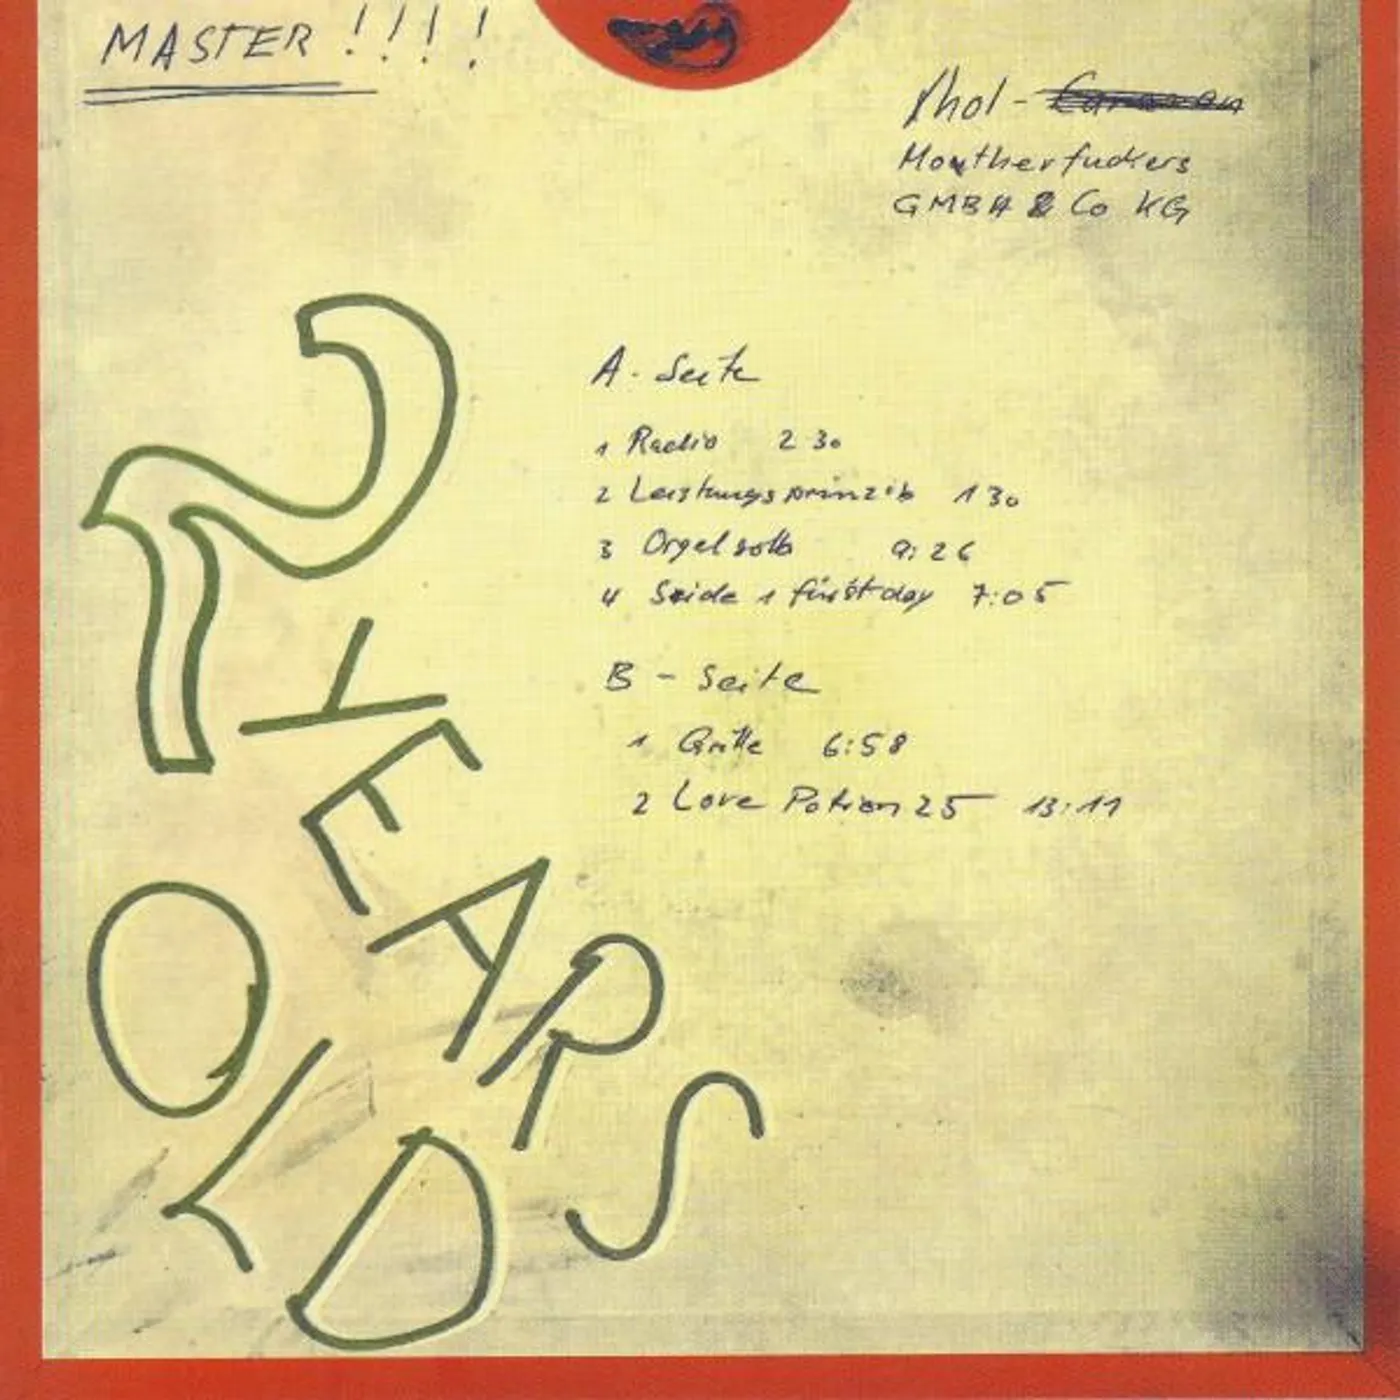 MASTER !!!!
Phol - Caravan
Moutherfuckers
GMBH & Co KG
A - Seite
1 Radio 2 30
2 Leistungsprinzib 1 30
3 Orgelsolo 9:26
4 Seide 1 first day 7:05
B - Seite
1 Grille 6:58
2 Love Potion 25 13:11
2
YEARS
OLD